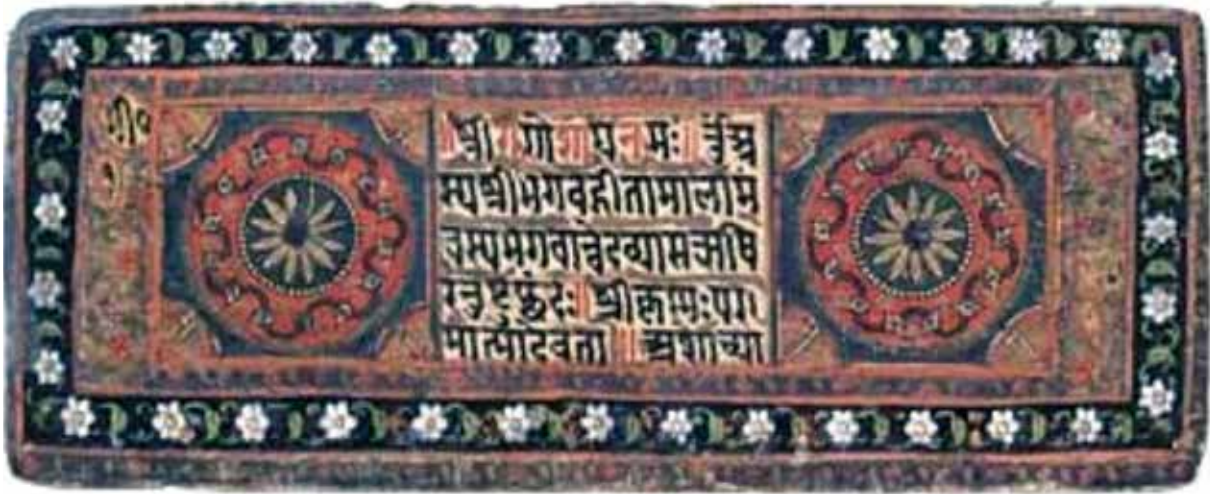 गी०
१
॥श्रीगणेशायनमः॥ ॐअ
स्यश्रीभगवद्गीतामालामं
त्रस्यभगवान्वेदव्यासऋषि
रनुष्टुप्छंदः॥श्रीकृष्णःपर
मात्मादेवता॥अशोच्या